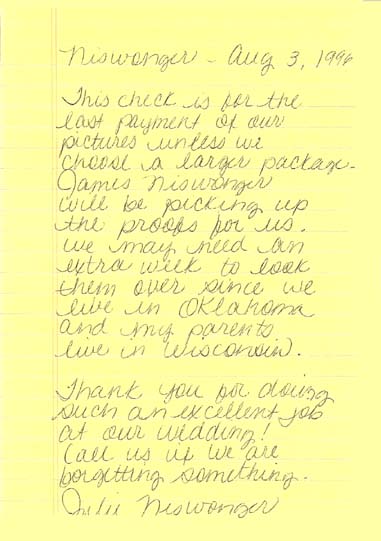 Niswonger - Aug 3, 1996
This check is for the
last payment of our
pictures unless we
choose a larger package.
James Niswonger
will be picking up
the proofs for us.
We may need an
extra week to look
them over since we
live in Oklahoma
and my parents
live in Wisconsin.
Thank you for doing
such an excellent job
at our wedding!
Call us if we are
forgetting something.
Julie Niswonger